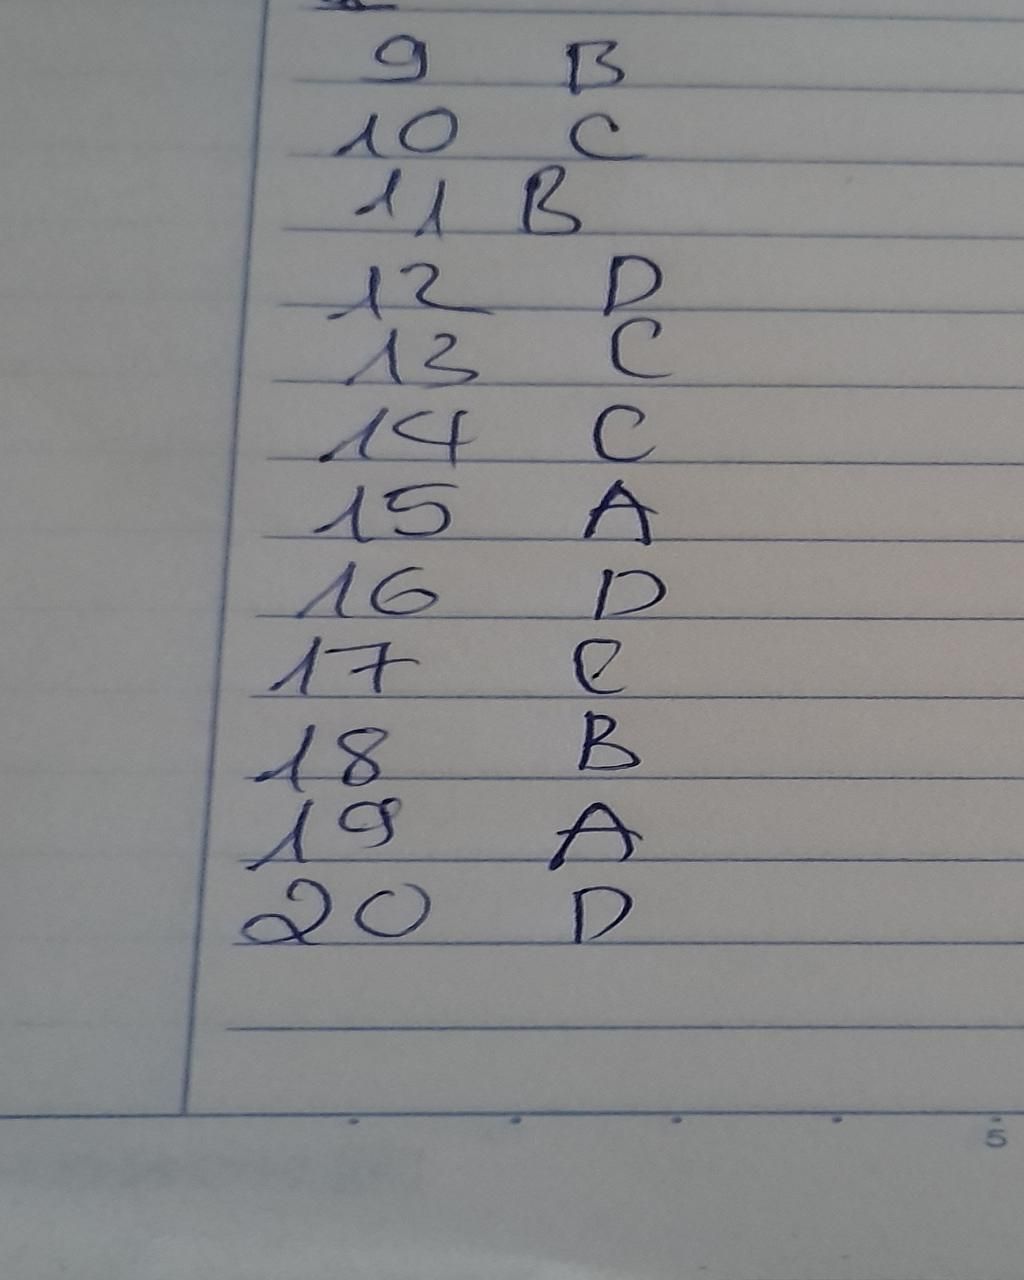 9 B
10 C
11 B
12 D
13 C
14 C
15 A
16 D
17 C
18 B
19 A
20 D
5